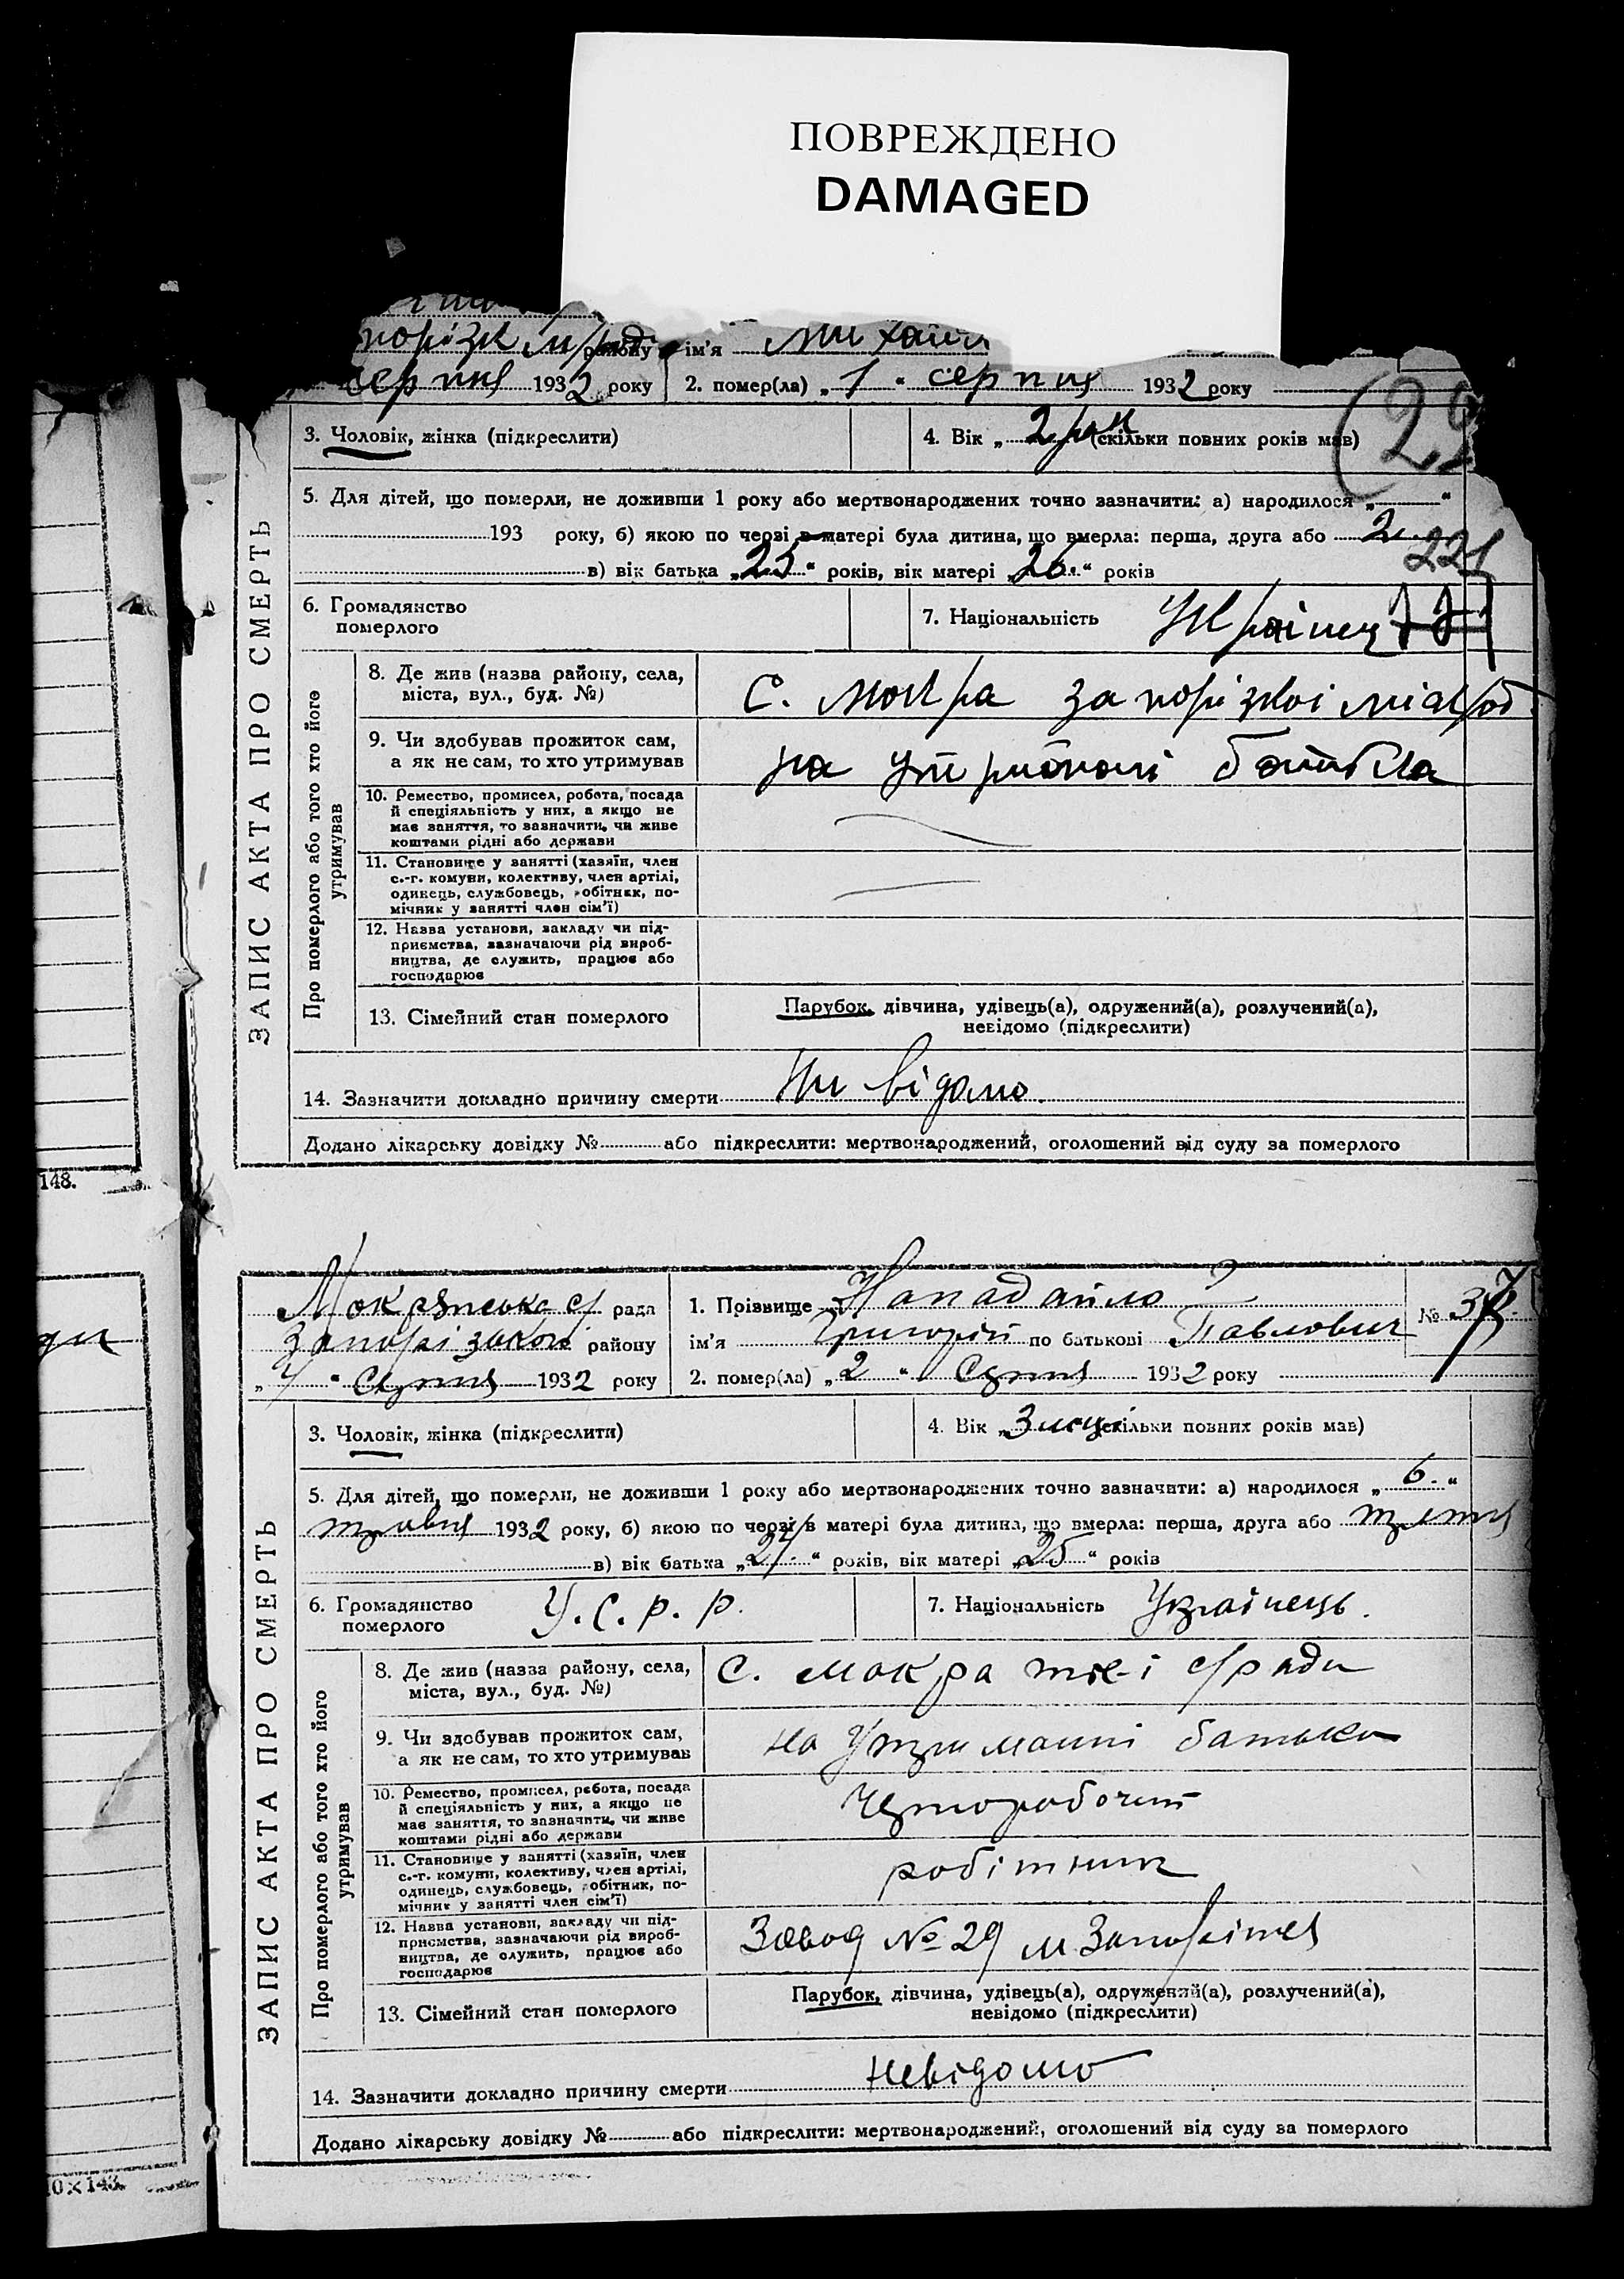 ПОВРЕЖДЕНО
DAMAGED
району ім'я Михайл
серпня 1932 року 2. помер(ла) „1“ серпня 1932 року
(29
3. Чоловік, жінка (підкреслити) 4. Вік „2 рок (скільки повних років мав)
5. Для дітей, що померли, не доживши 1 року або мертвонароджених точно зазначити: а) народилося „ “
193 року, б) якою по черзі в матері була дитина, що вмерла: перша, друга або 2
221
в) вік батька „25“ років, вік матері „26.“ років
6. Громадянство
померлого
7. Національність Украінец
ЗАПИС АКТА ПРО СМЕРТЬ
Про померлого або того хто його
утримував
8. Де жив (назва району, села,
міста, вул., буд. №)
С. Мокра запорізкоі міскрад
9. Чи здобував прожиток сам,
а як не сам, то хто утримував
на утриманні батька
10. Ремество, промисел, робота, посада
й спеціяльність у них, а якщо не
має заняття, то зазначити, чи живе
коштами рідні або держави
11. Становище у занятті (хазяїн, член
с.-г. комуни, колективу, член артілі,
одинець, службовець, робітник, по-
мічник у занятті член сім'ї)
12. Назва установи, закладу чи під-
приємства, зазначаючи рід вироб-
ництва, де служить, працює або
господарює
13. Сімейний стан померлого
Парубок, дівчина, удівець(а), одружений(а), розлучений(а),
невідомо (підкреслити)
14. Зазначити докладно причину смерти Ни відомо.
Додано лікарську довідку № або підкреслити: мертвонароджений, оголошений від суду за померлого
148.
Мокрянська с/ рада 1. Прізвище Нападайло № 37
Запорізького району ім'я Григорій по батькові Павлович
„4“ Серпня 1932 року 2. помер(ла) „2“ Серпня 1932 року
3. Чоловік, жінка (підкреслити) 4. Вік „3 місяці (скільки повних років мав)
5. Для дітей, що померли, не доживши 1 року або мертвонароджених точно зазначити: а) народилося „6.“
травня 1932 року, б) якою по черзі в матері була дитина, що вмерла: перша, друга або третя
в) вік батька „27.“ років, вік матері „25“ років
6. Громадянство
померлого
У.С.Р.Р.
7. Національність Українець.
ЗАПИС АКТА ПРО СМЕРТЬ
Про померлого або того хто його
утримував
8. Де жив (назва району, села,
міста, вул., буд. №)
С. Мокра тіє-ї с/ради
9. Чи здобував прожиток сам,
а як не сам, то хто утримував
на утриманні батька
10. Ремество, промисел, робота, посада
й спеціяльність у них, а якщо не
має заняття, то зазначити, чи живе
коштами рідні або держави
Чорноробочий
11. Становище у занятті (хазяїн, член
с.-г. комуни, колективу, член артілі,
одинець, службовець, робітник, по-
мічник у занятті член сім'ї)
робітник
12. Назва установи, закладу чи під-
приємства, зазначаючи рід вироб-
ництва, де служить, працює або
господарює
Завод № 29 м Запоріжжя
13. Сімейний стан померлого
Парубок, дівчина, удівець(а), одружений(а), розлучений(а),
невідомо (підкреслити)
14. Зазначити докладно причину смерти невідомо
Додано лікарську довідку № або підкреслити: мертвонароджений, оголошений від суду за померлого